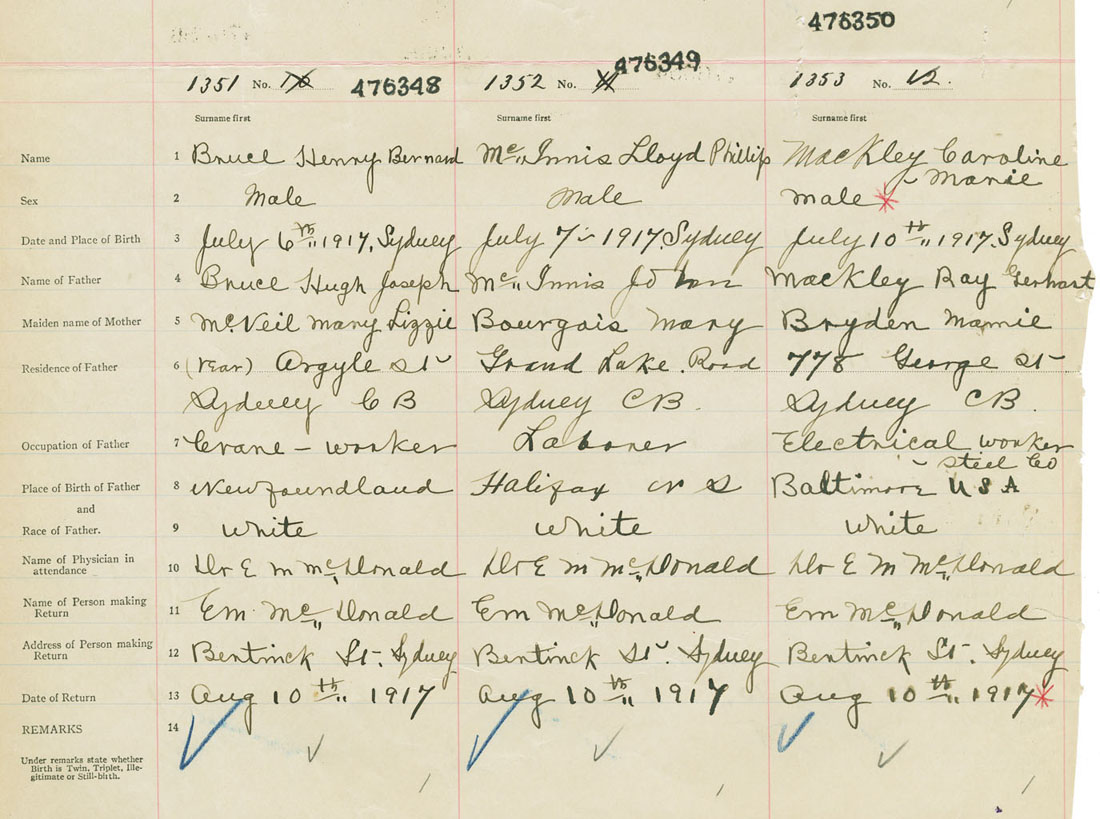 476350
1351 No. 476348 1352 No. 476349 1353 No. 12.
Surname first Surname first Surname first
Name 1 Bruce Henry Bernard Mc Innis Lloyd Phillip Mackley Caroline
Marie
Sex 2 Male Male Male *
Date and Place of Birth 3 July 6th 1917. Sydney July 7 - 1917. Sydney July 10th 1917. Sydney
Name of Father 4 Bruce Hugh Joseph Mc Innis John Mackley Ray Gerhart
Maiden name of Mother 5 McNeil Mary Lizzie Bourgois Mary Bryden Mamie
Residence of Father 6 (rear) Argyle St Grand Lake. Road 778 George St
Sydney C B Sydney CB. Sydney CB.
Occupation of Father 7 Crane - worker Laborer Electrical worker
- Steel Co
Place of Birth of Father 8 Newfoundland Halifax N S Baltimore U S A
and
Race of Father. 9 White White White
Name of Physician in
attendance 10 Dr E M McDonald Dr E M McDonald Dr E M McDonald
Name of Person making
Return 11 EM McDonald EM McDonald EM McDonald
Address of Person making
Return 12 Bentinck St. Sydney Bentinck St. Sydney Bentinck St. Sydney
Date of Return 13 Aug 10th 1917 Aug 10th 1917 Aug 10th 1917 *
REMARKS 14
Under remarks state whether
Birth is Twin, Triplet, Ille-
gitimate or Still-birth.